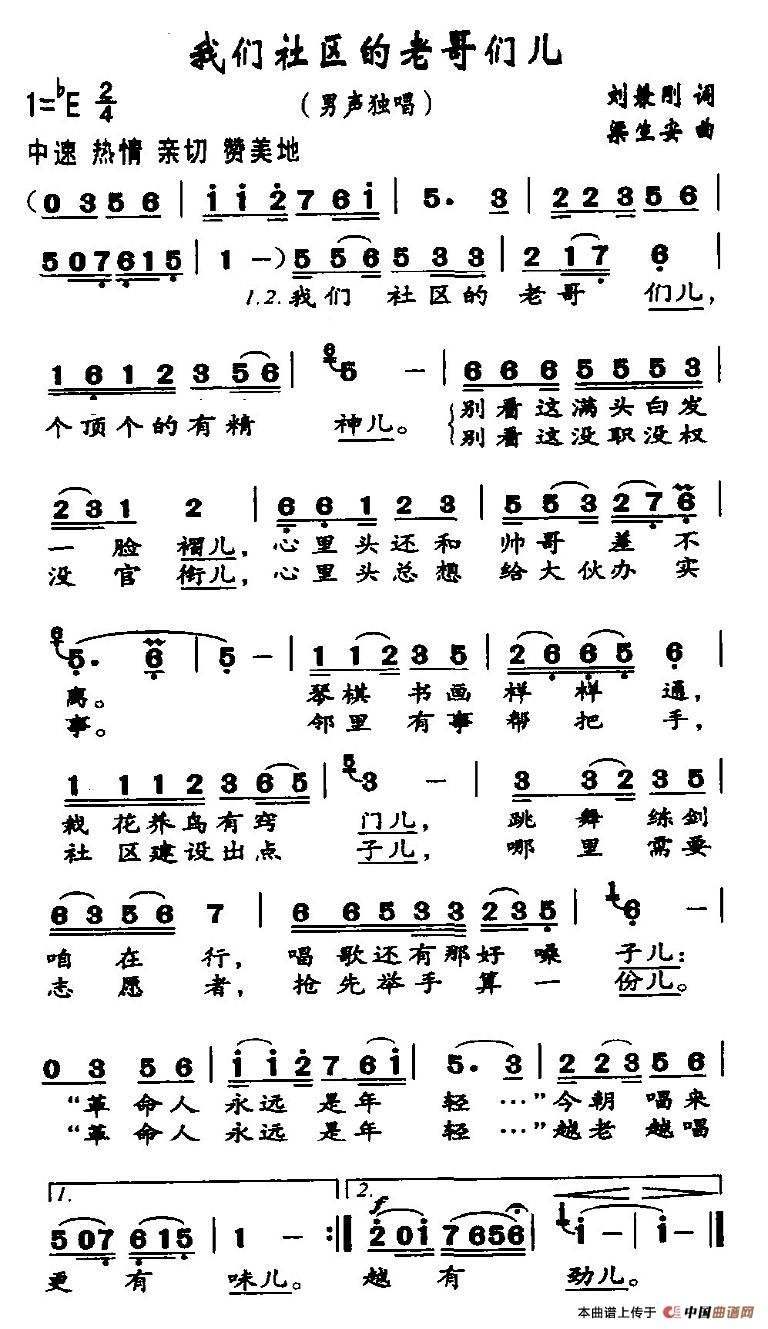 我们社区的老哥们儿
1=♭E 2/4
（男声独唱）
刘兼刚 词
梁生安 曲
中速 热情 亲切 赞美地
(0 3 5 6 | i i 2 7 6 i | 5. 3 | 2 2 2 3 5 6
5 0 7 6 1 5 | 1 －) 5 5 6 5 3 3 | 2 1 7 6 |
1.2.我们 社区的 老哥 们儿，
1 6 1 2 3 5 6 | 6 5 － | 6 6 6 5 5 5 3 |
个顶个的有精 神儿。 别看这满头白发
别看这没职没权
2 3 1 2 | 6 6 1 2 3 | 5 5 3 2 7 6 |
一脸褶儿，心里头还和 帅哥 差不
没官衔儿，心里头总想 给大伙办实
6 5. 6 | 5 － | 1 1 2 3 5 | 2 6 6 5 6 |
离。 琴棋 书画 样样 通，
事。 邻里 有事 帮把 手，
1 1 1 2 3 6 5 | 5 3 － | 3 3 2 3 5 |
栽花养鸟有窍 门儿， 跳舞练剑
社区建设出点 子儿， 哪里需要
6 3 5 6 7 | 6 6 5 3 3 2 3 5 | 1 6 － |
咱在行， 唱歌还有那好嗓 子儿：
志愿者， 抢先举手算一 份儿。
0 3 5 6 | i i 2 7 6 i | 5. 3 | 2 2 3 5 6 |
“革命人 永远 是年 轻…”今朝 唱来
“革命人 永远 是年 轻…”越老 越唱
1. 2. f
5 0 7 6 1 5 | 1 － :‖ 2 0 i 7 6 5 6 | i i － | i － ‖
更有 味儿。越有 劲儿。
本曲谱上传于 中国曲谱网